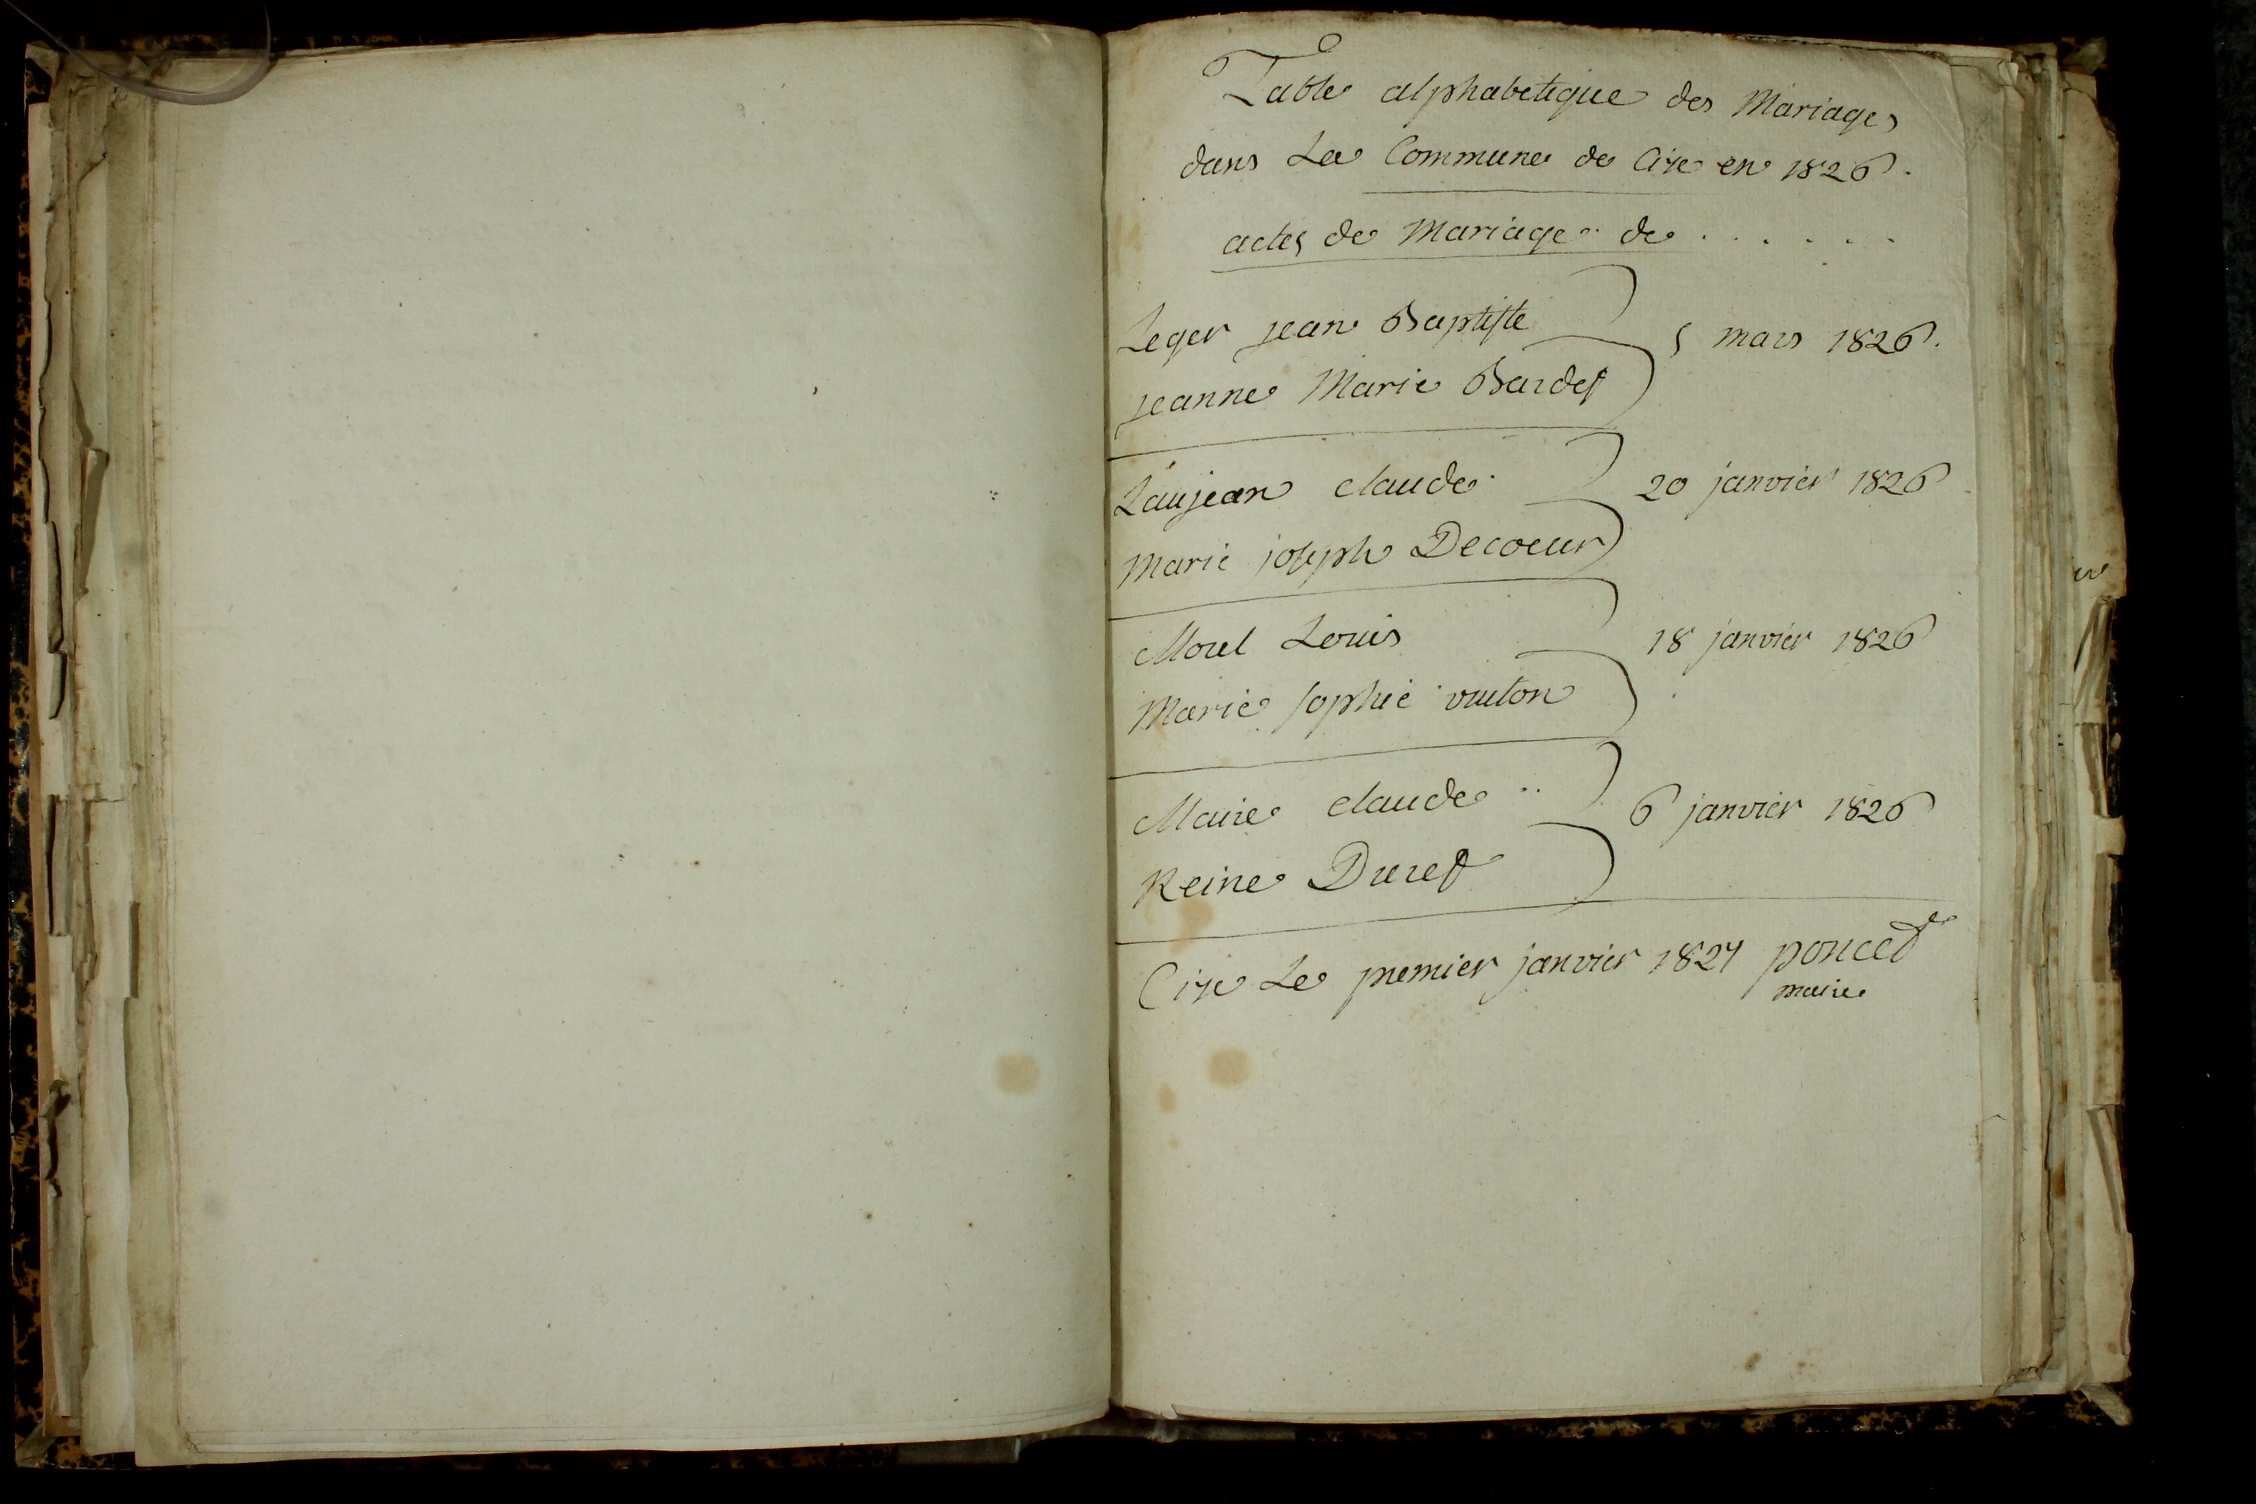 Table alphabetique des Mariages
dans La Commune de Cire en 1826.
actes de Mariage de . . . . . .
Leger jean Baptiste
5 mars 1826.
jeanne Marie Bardet
Laujean claude
20 janvier 1826
Marie joseph Decoeur
Morel Louis
18 janvier 1826
Marie sophie vuiton
Maire claude
6 janvier 1826
Reine Duret
Cire Le premier janvier 1827 poncet
maire